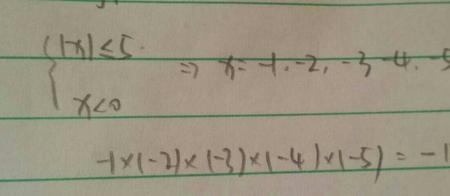 {|-x|≤5.
x<0 ⇒ x=-1,-2,-3 -4. -5
-1×(-2)×(-3)×(-4)×(-5)=-1